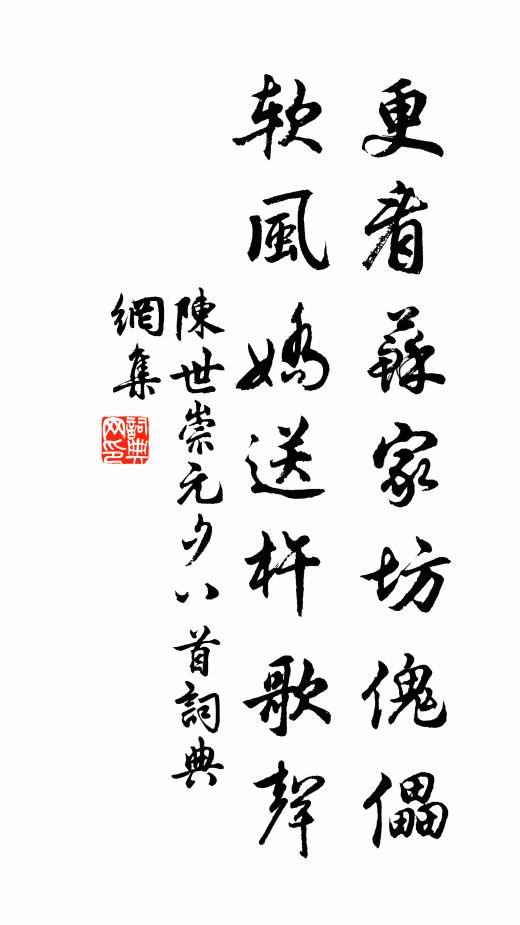 更看蘇家坊傀儡
軟風嬌送杵歌聲
陳世崇元夕八首詞典
網集
詞典
网印